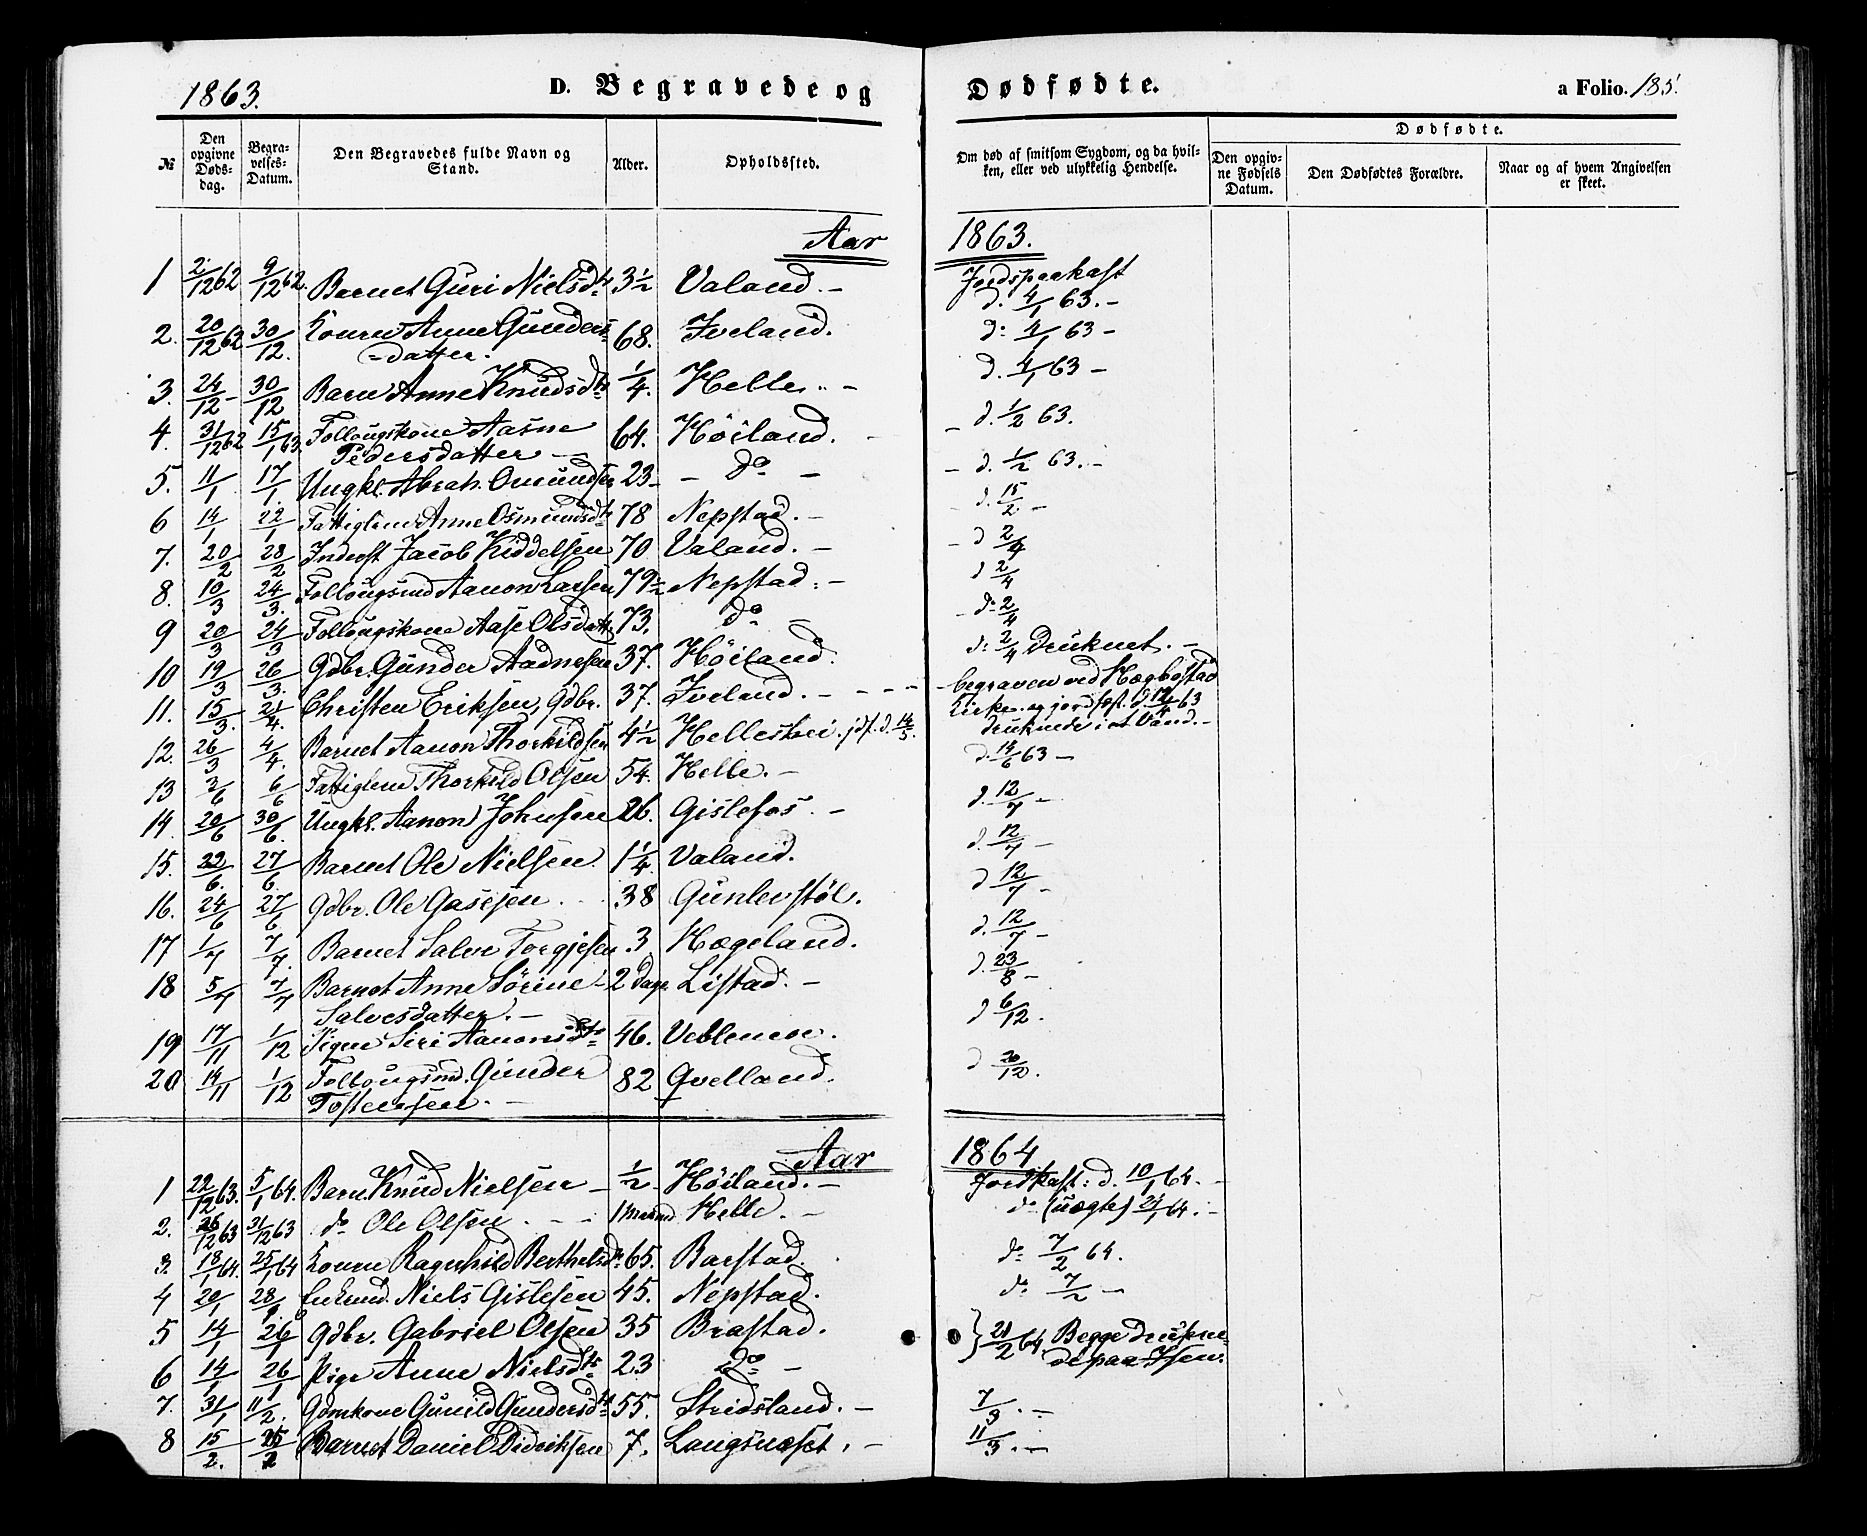 1863. D. Begravede og Dødfødte. a Folio. 185.
№ Den opgivne Døds-dag. Begra-velses-Datum. Den Begravedes fulde Navn og Stand. Alder. Opholdssted. Om død af smitsom Sygdom, og da hvil-ken, eller ved ulykkelig Hendelse. Dødfødte. Den opgiv-ne Fødsels Datum. Den Dødfødtes Forældre. Naar og af hvem Angivelsen er skeet.
Aar 1863.
1 2/12 62 9/12 62. Barnet Guri Nielsdtr 3 1/2 Valand. – Jordspaakast d. 4/1 63. –
2. 20/12 62 30/12. Konen Anne Gunders-datter. 68. Iveland. do 4/1 63 –
3. 24/12 – 30/12 Barn Anne Knudsdtr 1/4. Helle. – d. 4/1 63 –
4. 31/12 62 15/1 63. Follougskone Aasne Pedersdatter – 64. Höiland. – d. 1/2 63.
5. 11/1 17/1. Ungkl. Abrah. Omundsen 23 – do – – d. 1/2 63. –
6 14/1 22/1 Fattiglem Anne Osmundsdtr 78 Nepstad. – d. 15/2 –
7. 20/2 28/2 Inderst Jacob Kiddelsen 70 Valand. – – d 2/4
8. 10/3 24/3. Follougsmd Aanon Larsen 79 1/2 Nepstad. – d 2/4
9 20/3 24/3 Follougskone Aase Olsdatter 73. do – do 2/4
10 19/3 26/3. Gdbr. Gunder Aadnesen 37. Höiland. do 2/4 Druknet. –
11. 15/3. 21/4. Christen Eriksen, Gdbr. 37. Iveland. – – – – begraven ved Hægbostad Kirke og jordfæst. d. 12/4 63
12. 26/3 4/4. Barnet Aanon Thorkildsen 4 1/2 Helleshei. jdf. d. 14/5. druknede i et Vand. –
13 2/6 6/6 Fattiglem Thorkild Olsen 54. Helle. – d. 14/6 63 –
14. 20/6 30/6. Ungkl. Aanon Johnsen 26. Gislefos. – d. 12/7 –
15. 22/6. 27/6. Barnet Ole Nielsen. 1 1/4. Valand. d. 12/7 –
16. 24/6 27/6 Gdbr. Ole Gasesen. 38 Gunlevstöl. d 12/7 –
17 1/7 7/7. Barnet Salve Torgjesen 3 Hægeland. d. 12/7 –
18 5/7 7/7 Barnet Anne Sörine Salvesdatter. – 2 Dage Listad. – d. 23/8 –
19 17/11 1/12 Pigen Siri Aanonsdtr 46. Veblemoe. d 6/12.
20 14/11 1/12 Follougsmd. Gunder Tostensen. – 82 Qvelland. d 20/12.
Aar 1864
1 22/12 63. 5/1 64. Barn Knud Nielsen – 1/2 Höiland. – Jordkast: d. 10/1 64. –
2. 26/12 63 31/12 63 do Ole Olsen. – – 1 Maaned Helle. – do (uægte) 24/1 64. –
3. 18/1 64. 25/1 64 Konen Ragnhild Berthelsdr. 65. Barstad. do 7/2 64.
4 20/1 28/1 Enkemd. Niels Gislesen 45. Nepstad. do 7/2 –
5 14/1 26/1 Gdbr. Gabriel Olsen 35 Brastad. } 21/2 64 Begge drukne-
6 14/1 26/1 Pige Anne Nielsdtr 23 Do – de paa Isen.
7. 31/1 11/2. Gdmkone Gunild Gundersdtr 55. Stridsland. – 7/3. –
8 15/2. 25/2 Barnet Daniel Didriksen 7. Langsnæset. – 11/3. –